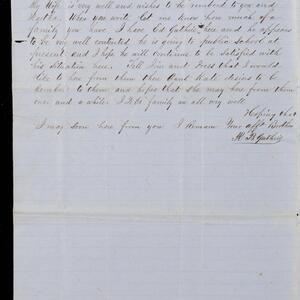 My Wife is very well and wishes to be remberd to you and
Martha. When you write let me know how much of a
family you have I have Ed Guthrie here and he appears
to be very well contented. he is going to public school at
present and I hope he will continue to be satisfied with
his situation here. Tell Jim and Fred that I would
like to hear from them thee Aunt Kate desires to be
rember to them and hopes that she may hear from them
once and a while. J H B family are all very well
Hoping that
I may soon hear from you I Remane Your afft Brother
H B Guthrie